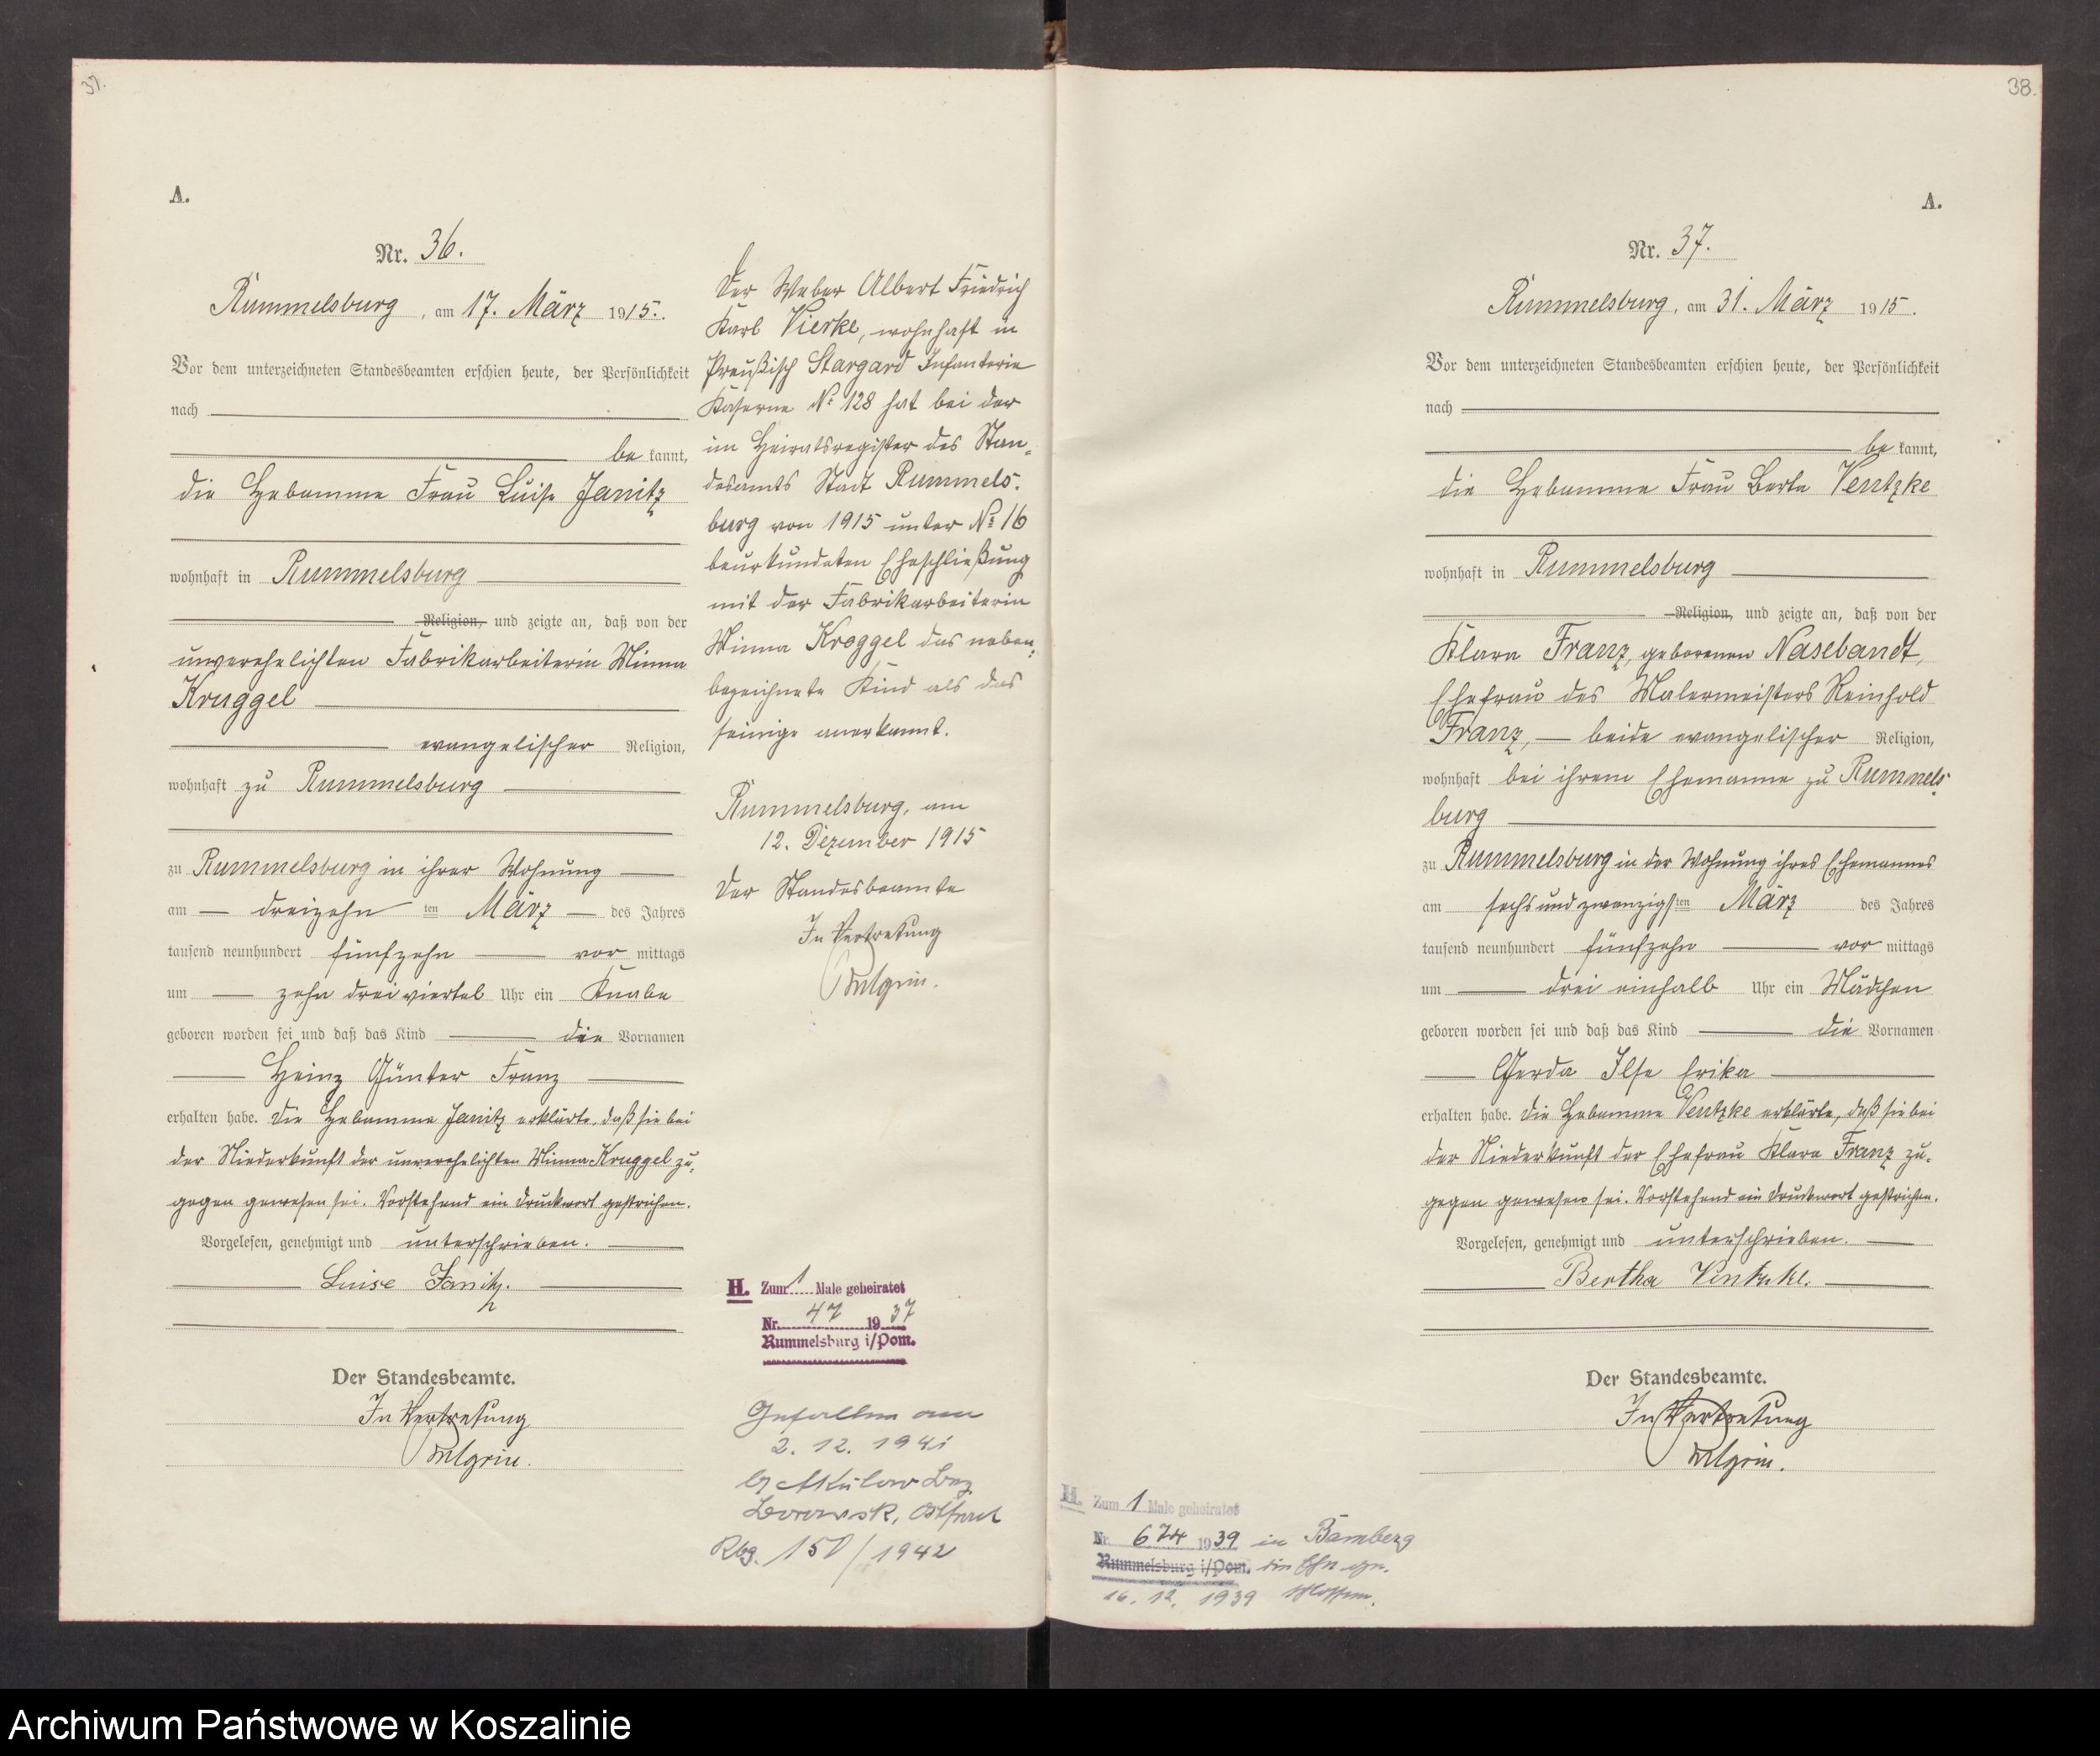 37.
A.
Nr. 36.
Rummelsburg, am 17. März 1915.
Vor dem unterzeichneten Standesbeamten erschien heute, der Persönlichkeit
nach
be kannt,
die Hebamme Frau Luise Janitz
wohnhaft in Rummelsburg
Religion, und zeigte an, daß von der
unverehelichten Fabrikarbeiterin Minna
Kruggel
evangelischer Religion,
wohnhaft zu Rummelsburg
zu Rummelsburg in ihrer Wohnung
am dreizehn ten März des Jahres
tausend neunhundert fünfzehn vor mittags
um zehn dreiviertel Uhr ein Knabe
geboren worden sei und daß das Kind die Vornamen
Heinz Günter Franz
erhalten habe. Die Hebamme Janitz erklärte, daß sie bei
der Niederkunft der unverehelichten Minna Kruggel zu-
gegen gewesen sei. Vorstehend ein Druckwort gestrichen.
Vorgelesen, genehmigt und unterschrieben.
Luise Janitz.
Der Standesbeamte.
In Vertretung
Der Weber Albert Friedrich
Karl Vierke, wohnhaft in
Preußisch Stargard Infanterie
Kaserne No 128 hat bei der
im Heiratsregister des Stan-
desamts Stadt Rummels-
burg von 1915 unter No 16
beurkundeten Eheschließung
mit der Fabrikarbeiterin
Minna Kroggel das neben-
bezeichnete Kind als das
seinige anerkannt.
Rummelsburg, am
12. Dezember 1915
Der Standesbeamte
In Vertretung
H. Zum 1 Male geheiratet
Nr. 47 1937
Rummelsburg i/Pom.
Gefallen am
2. 12. 1941
Borowsk, Ostfront
Rbg. 150/1942
38.
A.
Nr. 37.
Rummelsburg, am 31. März 1915.
Vor dem unterzeichneten Standesbeamten erschien heute, der Persönlichkeit
nach
be kannt,
die Hebamme Frau Berta Ventzke
wohnhaft in Rummelsburg
Religion, und zeigte an, daß von der
Klara Franz, geborenen Nasebandt,
Ehefrau des Malermeisters Reinhold
Franz, beide evangelischer Religion,
wohnhaft bei ihrem Ehemanne zu Rummels-
burg
zu Rummelsburg in der Wohnung ihres Ehemannes
am sechsundzwanzigsten März des Jahres
tausend neunhundert fünfzehn vor mittags
um drei einhalb Uhr ein Mädchen
geboren worden sei und daß das Kind die Vornamen
Gerda Ilse Erika
erhalten habe. Die Hebamme Ventzke erklärte, daß sie bei
der Niederkunft der Ehefrau Klara Franz zu-
gegen gewesen sei. Vorstehend ein Druckwort gestrichen.
Vorgelesen, genehmigt und unterschrieben.
Bertha Ventzke.
Der Standesbeamte.
In Vertretung
H. Zum 1 Male geheiratet
Nr. 674 1939 in Bamberg
Rummelsburg i/Pom. die Ehe ge-
16. 12. 1939 schlossen.
Archiwum Państwowe w Koszalinie